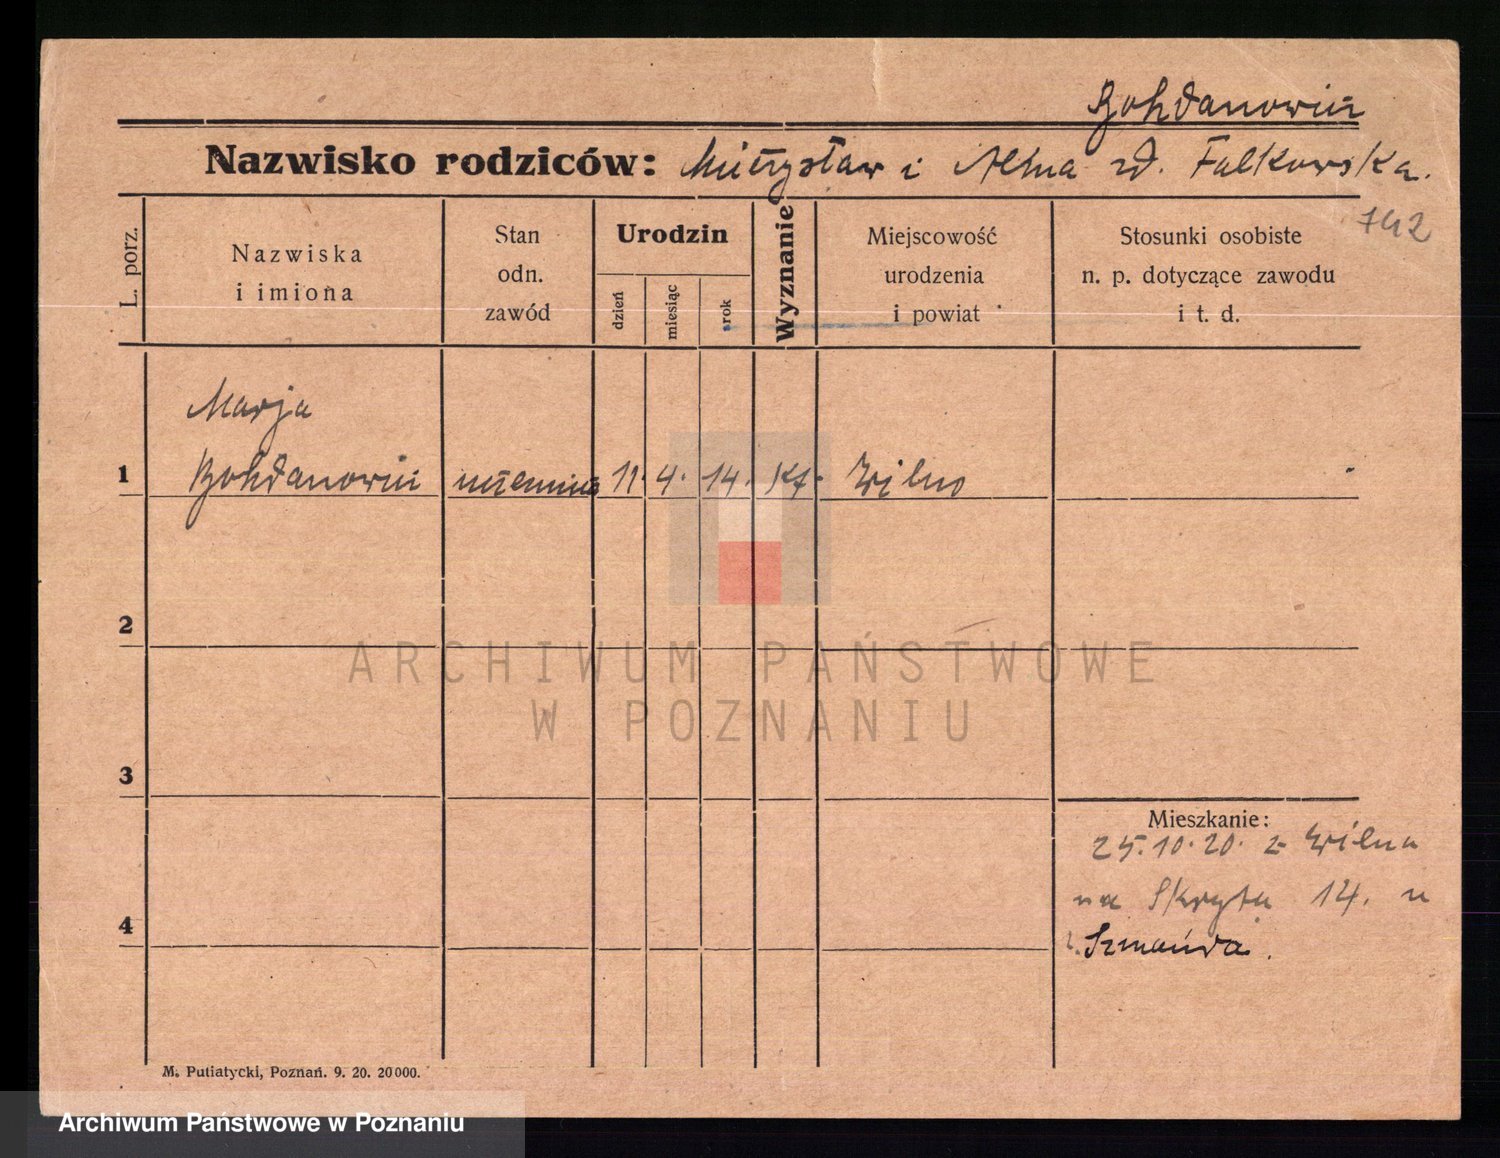 Bohdanowicz
Nazwisko rodziców: Mieczysław i Alina zd. Falkowska.
742
L. porz.
Nazwiska
i imiona
Stan
odn.
zawód
Urodzin
dzień
miesiąc
rok
Wyznanie
Miejscowość
urodzenia
i powiat
Stosunki osobiste
n. p. dotyczące zawodu
i t. d.
Marja
1 Bohdanowicz uczennica 11. 4. 14. kt. Wilno
2
3
4
Mieszkanie:
25.10.20. z Wilna
na Skrytą 14. u
Szmańda.
M. Putiatycki, Poznań. 9. 20. 20000.
ARCHIWUM PAŃSTWOWE
W POZNANIU
Archiwum Państwowe w Poznaniu